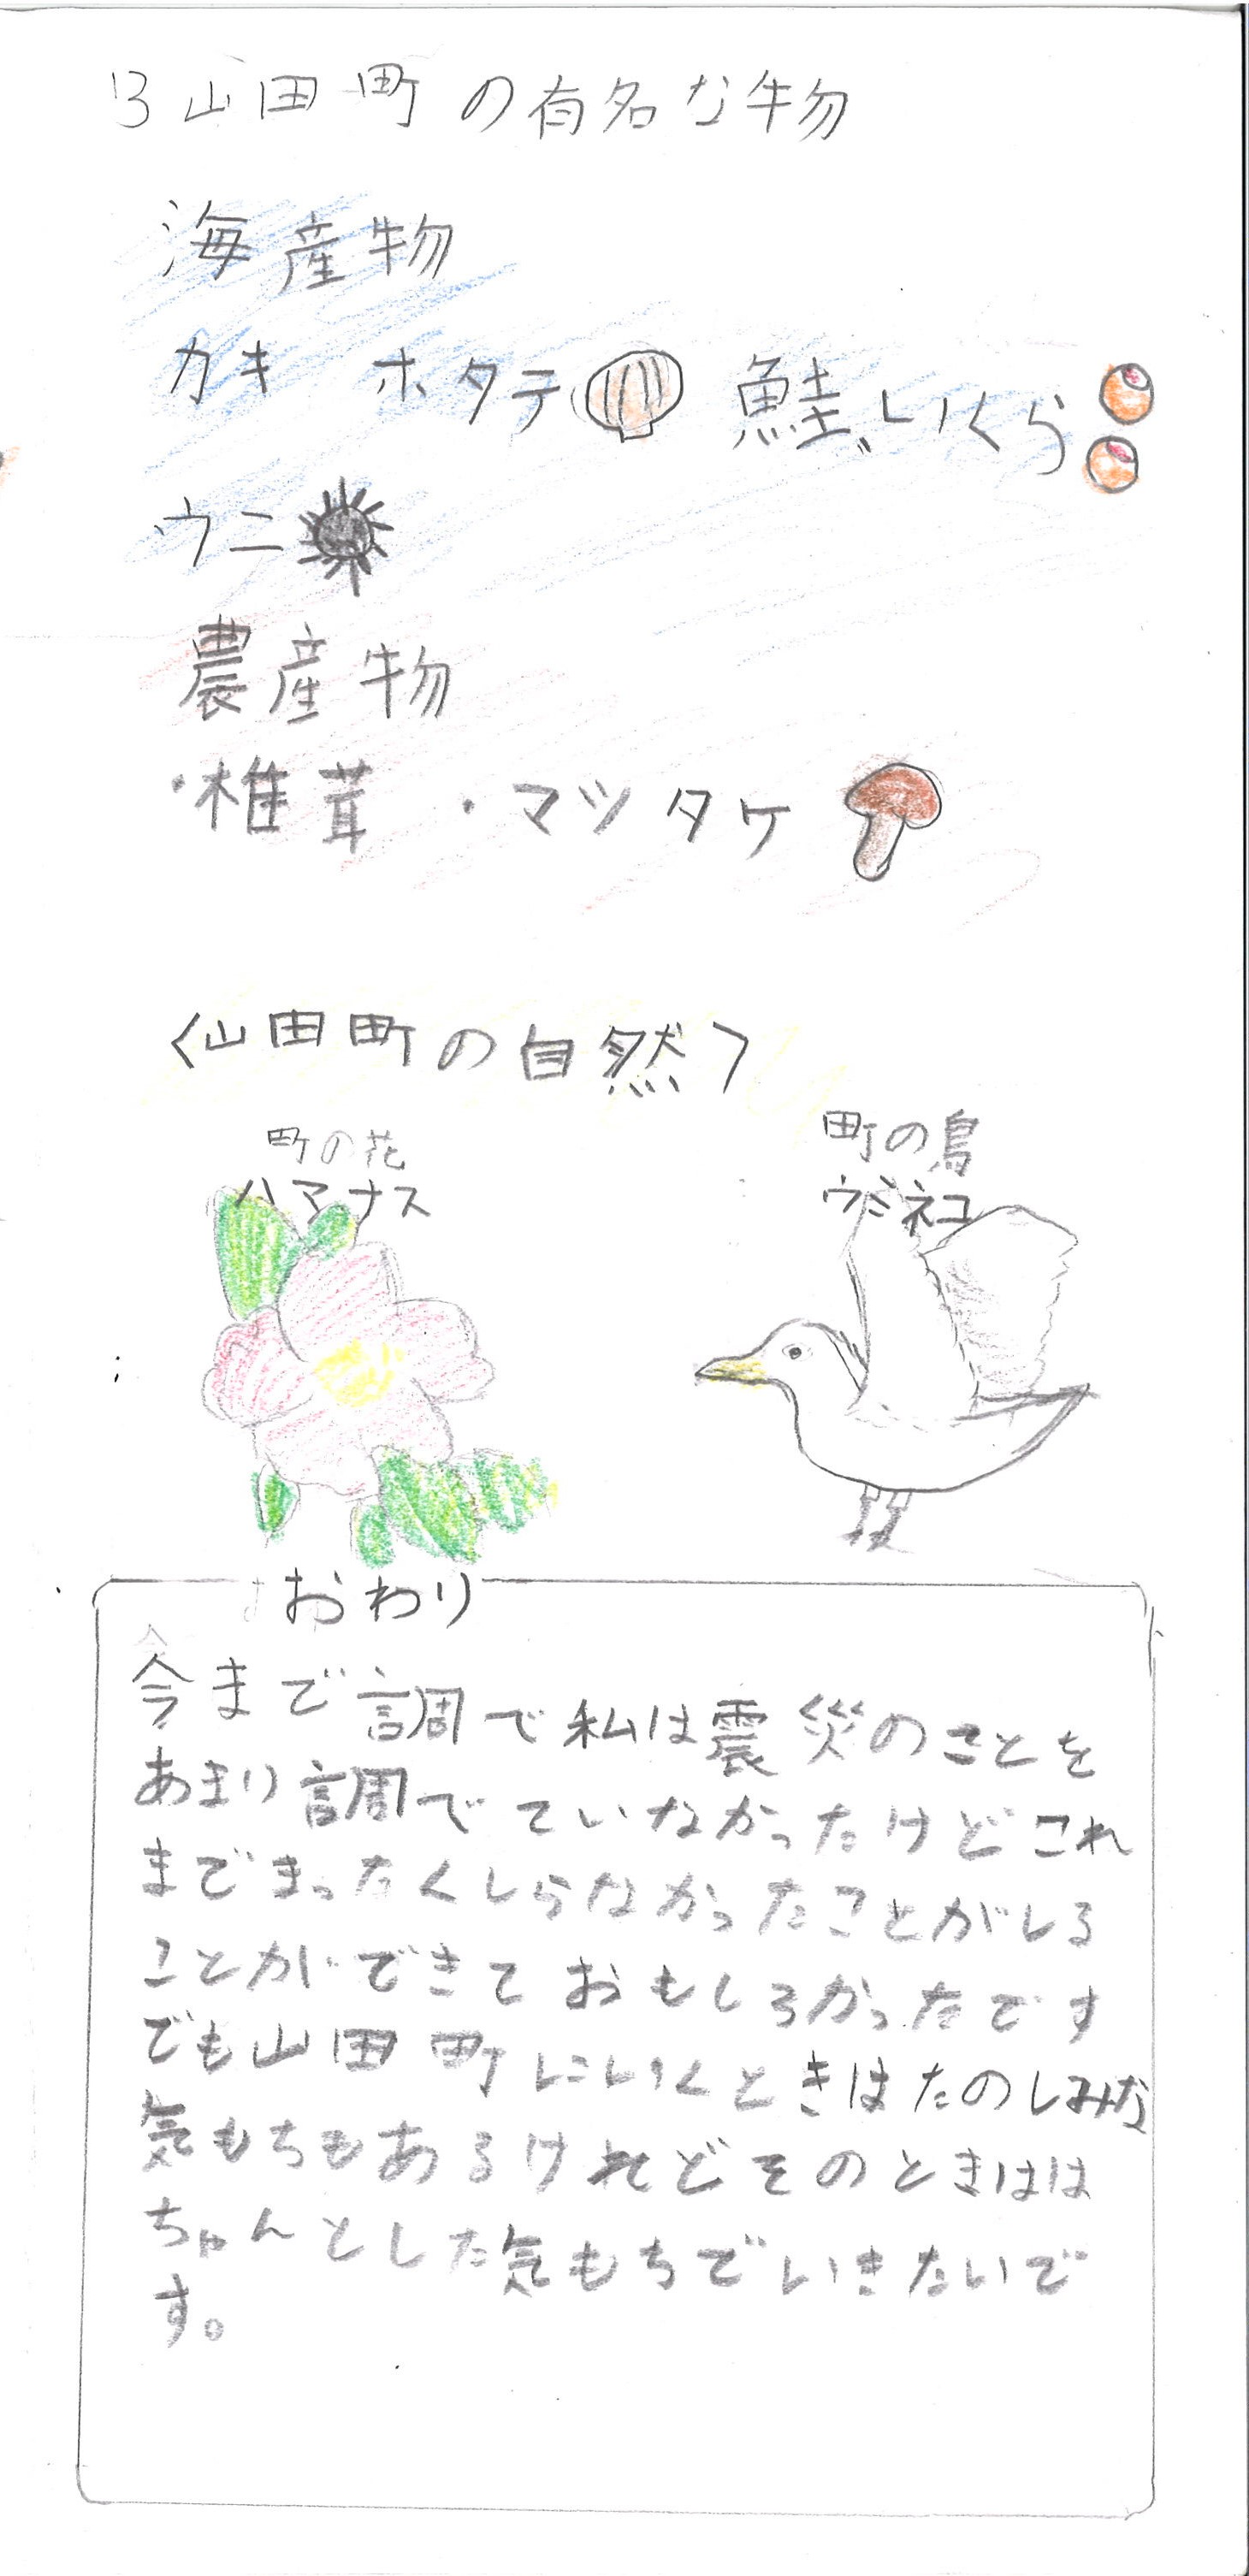 3 山田町の有名な物
海産物
カキ ホタテ 鮭、いくら
ウニ
農産物
・椎茸 ・マツタケ
<山田町の自然>
町の花
ハマナス
町の鳥
ウミネコ
おわり
今まで調で私は震災のことを
あまり調でていなかったけどこれ
までまったくしらなかったことがしる
ことができておもしろかったです
でも山田町にいくときはたのしみな
気もちもあるけれどそのときはは
ちゃんとした気もちでいきたいで
す。